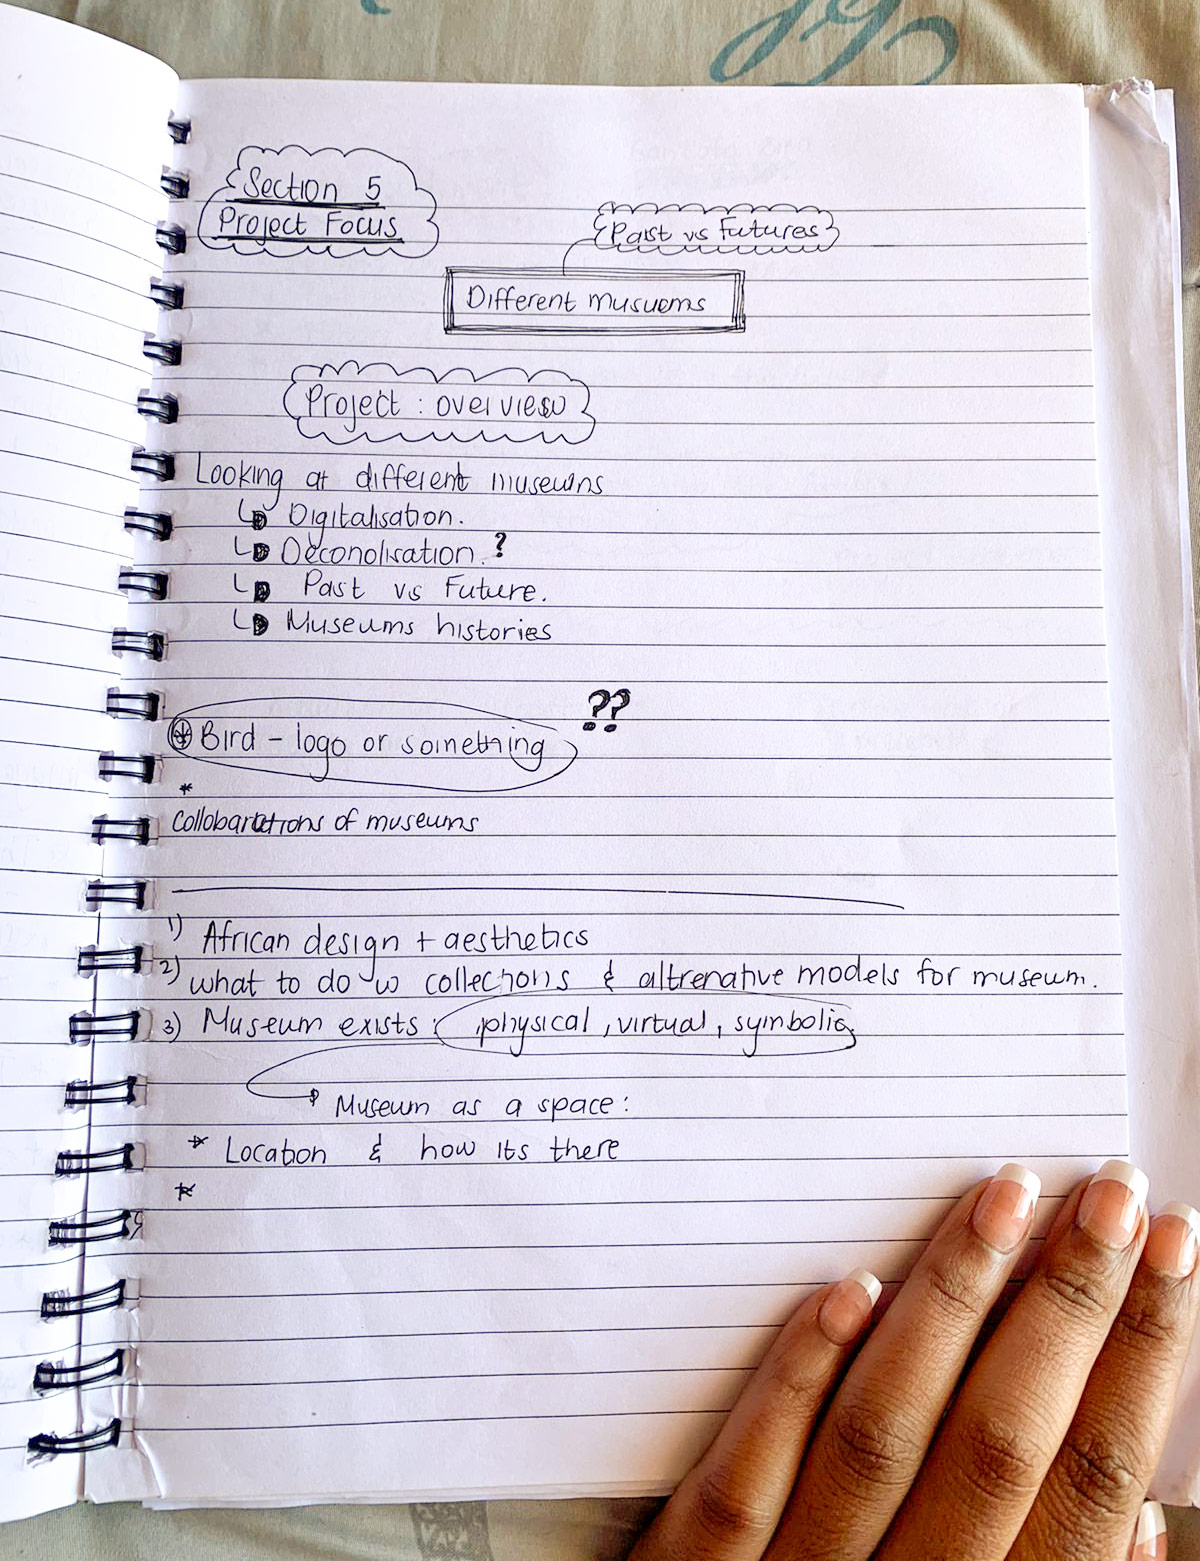 Section 5
Project Focus
Past vs Futures
Different musuems
Project : overview
Looking at different museums
Digitalisation.
Deconolisation. ?
Past vs Future.
Museums histories
??
Bird - logo or something
*
Collobarations of museums
1) African design + aesthetics
2) what to do w collections & altrenative models for museum.
3) Museum exists : physical, virtual, symbolic
Museum as a space:
* Location & how its there
*